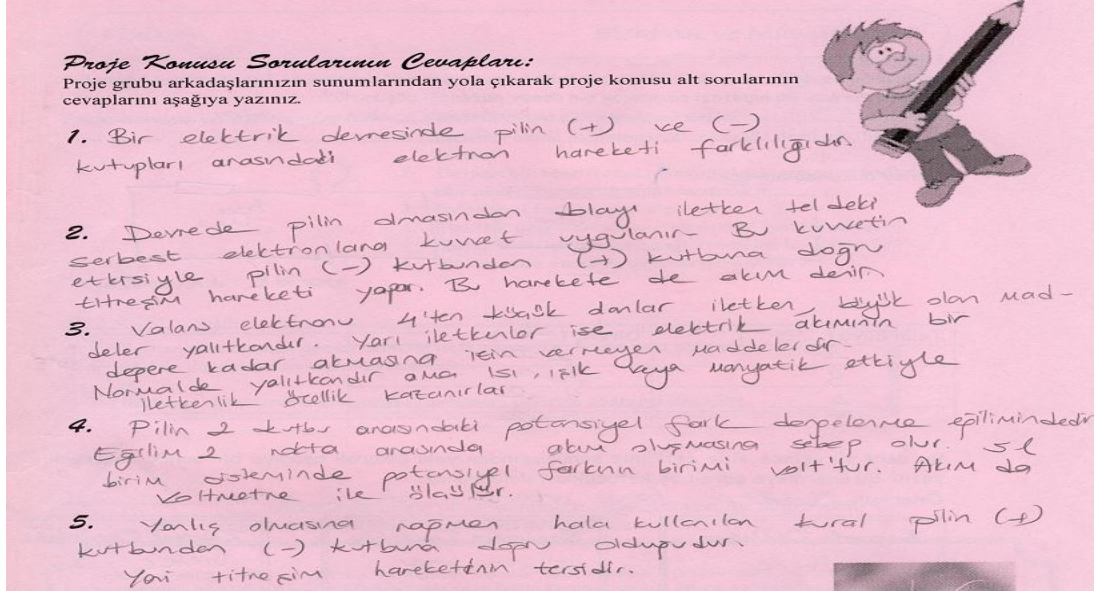 Proje Konusu Sorularının Cevapları:
Proje grubu arkadaşlarınızın sunumlarından yola çıkarak proje konusu alt sorularının
cevaplarını aşağıya yazınız.
1. Bir elektrik devresinde pilin (+) ve (-)
kutupları arasındaki elektron hareketi farklılığıdır.
2. Devrede pilin olmasından dolayı iletken teldeki
serbest elektronlara kuvvet uygulanır. Bu kuvvetin
etkisiyle pilin (-) kutbundan (+) kutbuna doğru
titreşim hareketi yapar. Bu harekete de akım denir.
3. Valans elektronu 4'ten küçük olanlar iletken, büyük olan mad-
deler yalıtkandır. Yarı iletkenler ise elektrik akımının bir
değere kadar akmasına izin vermeyen maddelerdir.
Normalde yalıtkandır ama ısı, ışık veya manyatik etkiyle
iletkenlik özellik kazanırlar
4. Pilin 2 kutbu arasındaki potansiyel fark dengelenme eğilimindedir
Eğilim 2 nokta arasında akım oluşmasına sebep olur. SI
birim sisteminde potansiyel farkının birimi volt'tur. Akım da
Voltmetre ile ölçülür.
5. Yanlış olmasına rağmen hala kullanılan kural pilin (+)
kutbundan (-) kutbuna doğru olduğudur.
Yani titreşim hareketinin tersidir.